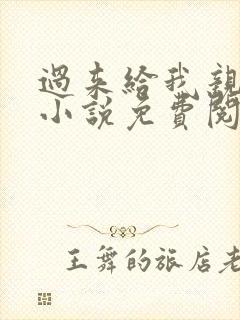 過来給我親
小說免費閱
王舞的旅店老